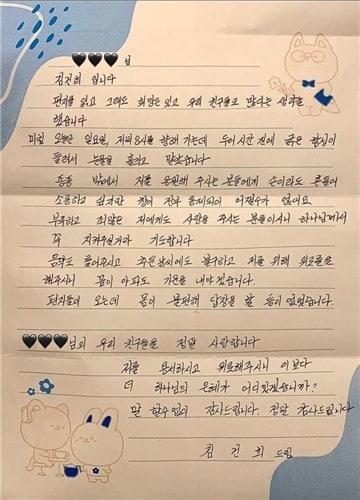 🖤🖤🖤님
김건희 입니다
편지를 읽고 그래도 희망은 있고 우리 친구들도 많다는 생각을
했습니다
마침 오늘은 일요일, 저녁 8시를 향해 가는데 두어시간 전에 굵은 함성이
들려서 눈물을 흘리고 말았습니다
종종 밖에서 저를 응원해 주시는 분들에게 손이라도 흔들어
소통하고 싶지만 창이 전부 통제되어 어쩔수가 없어요
부족하고 죄많은 저에게도 사랑을 주시는 분들이시니 하나님께서
꼭 지켜주실거라 기도합니다
음악도 틀어주시고 추운 날씨에도 불구하고 저를 위해 위로들을
해주시니 몸이 아파도 기운을 내야 겠습니다.
편지들이 오는데 몸이 불편해 답장을 할 수 없었습니다.
🖤🖤🖤님의 우리 친구들을 정말 사랑합니다
저를 용서하시고 위로해주시니 이보다
더 하나님의 은혜가 어디있겠습니까?
말 할수없이 감사드립니다. 정말 감사드립니다
김건희 드림